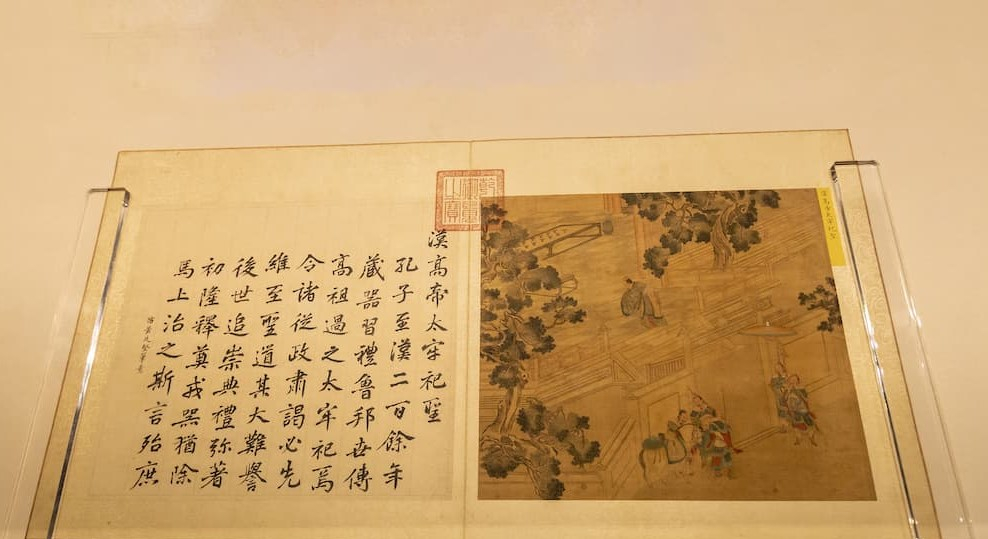 漢高帝太牢祀聖
乾隆
御覽
之寶
漢高帝太牢祀聖
孔子至漢二百餘年
藏器習禮魯邦世傳
高祖過之太牢祀焉
令諸從政肅謁必先
維至聖道其大難譽
後世追崇典禮弥著
初隆釋奠戎器猶除
馬上治之斯言殆庶